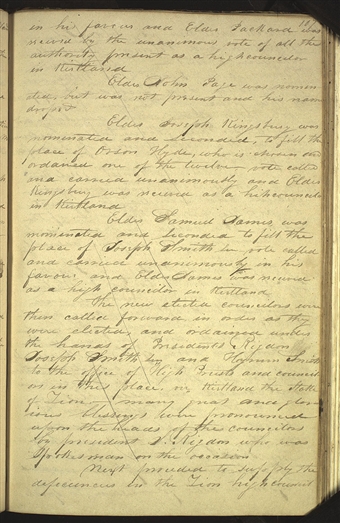 in his favour and Elder Packard was
received by the unanimous vote of all the
authority present as a high councilor
in Kirtland
Elder John Page was nomin-
ated, but was not present and his name
dropt
Elder Joseph Kingsbury was
nominated and seconded, to fill the
place of Orson Hyde, who is chosen and
ordained one of the twelve vote called
and carried unanimously and Elder
Kingsbury was received as a high councilor
in Kirtland
Elder Samuel James, was
nominated and seconded to fill the
place of Joseph Smith Sen vote called
and carried unanimously in his
favour, and Elder James was received
as a high councilor in Kirtland
The new elected councilors were
then called forward in order as they
were elected and ordained under
the hands of Presidents Rigdon
Joseph Smith Sen and Hyrum Smith
to the office of High Priests and council-
ors in this place, viz Kirtland the Stake
of Zion many great and glor-
ious blessings were pronounced
upon the heads of the councilors
by president S. Rigdon who was
Spokesman on the occasion
Next proceeded to supply the
deficiences in the Zion high council